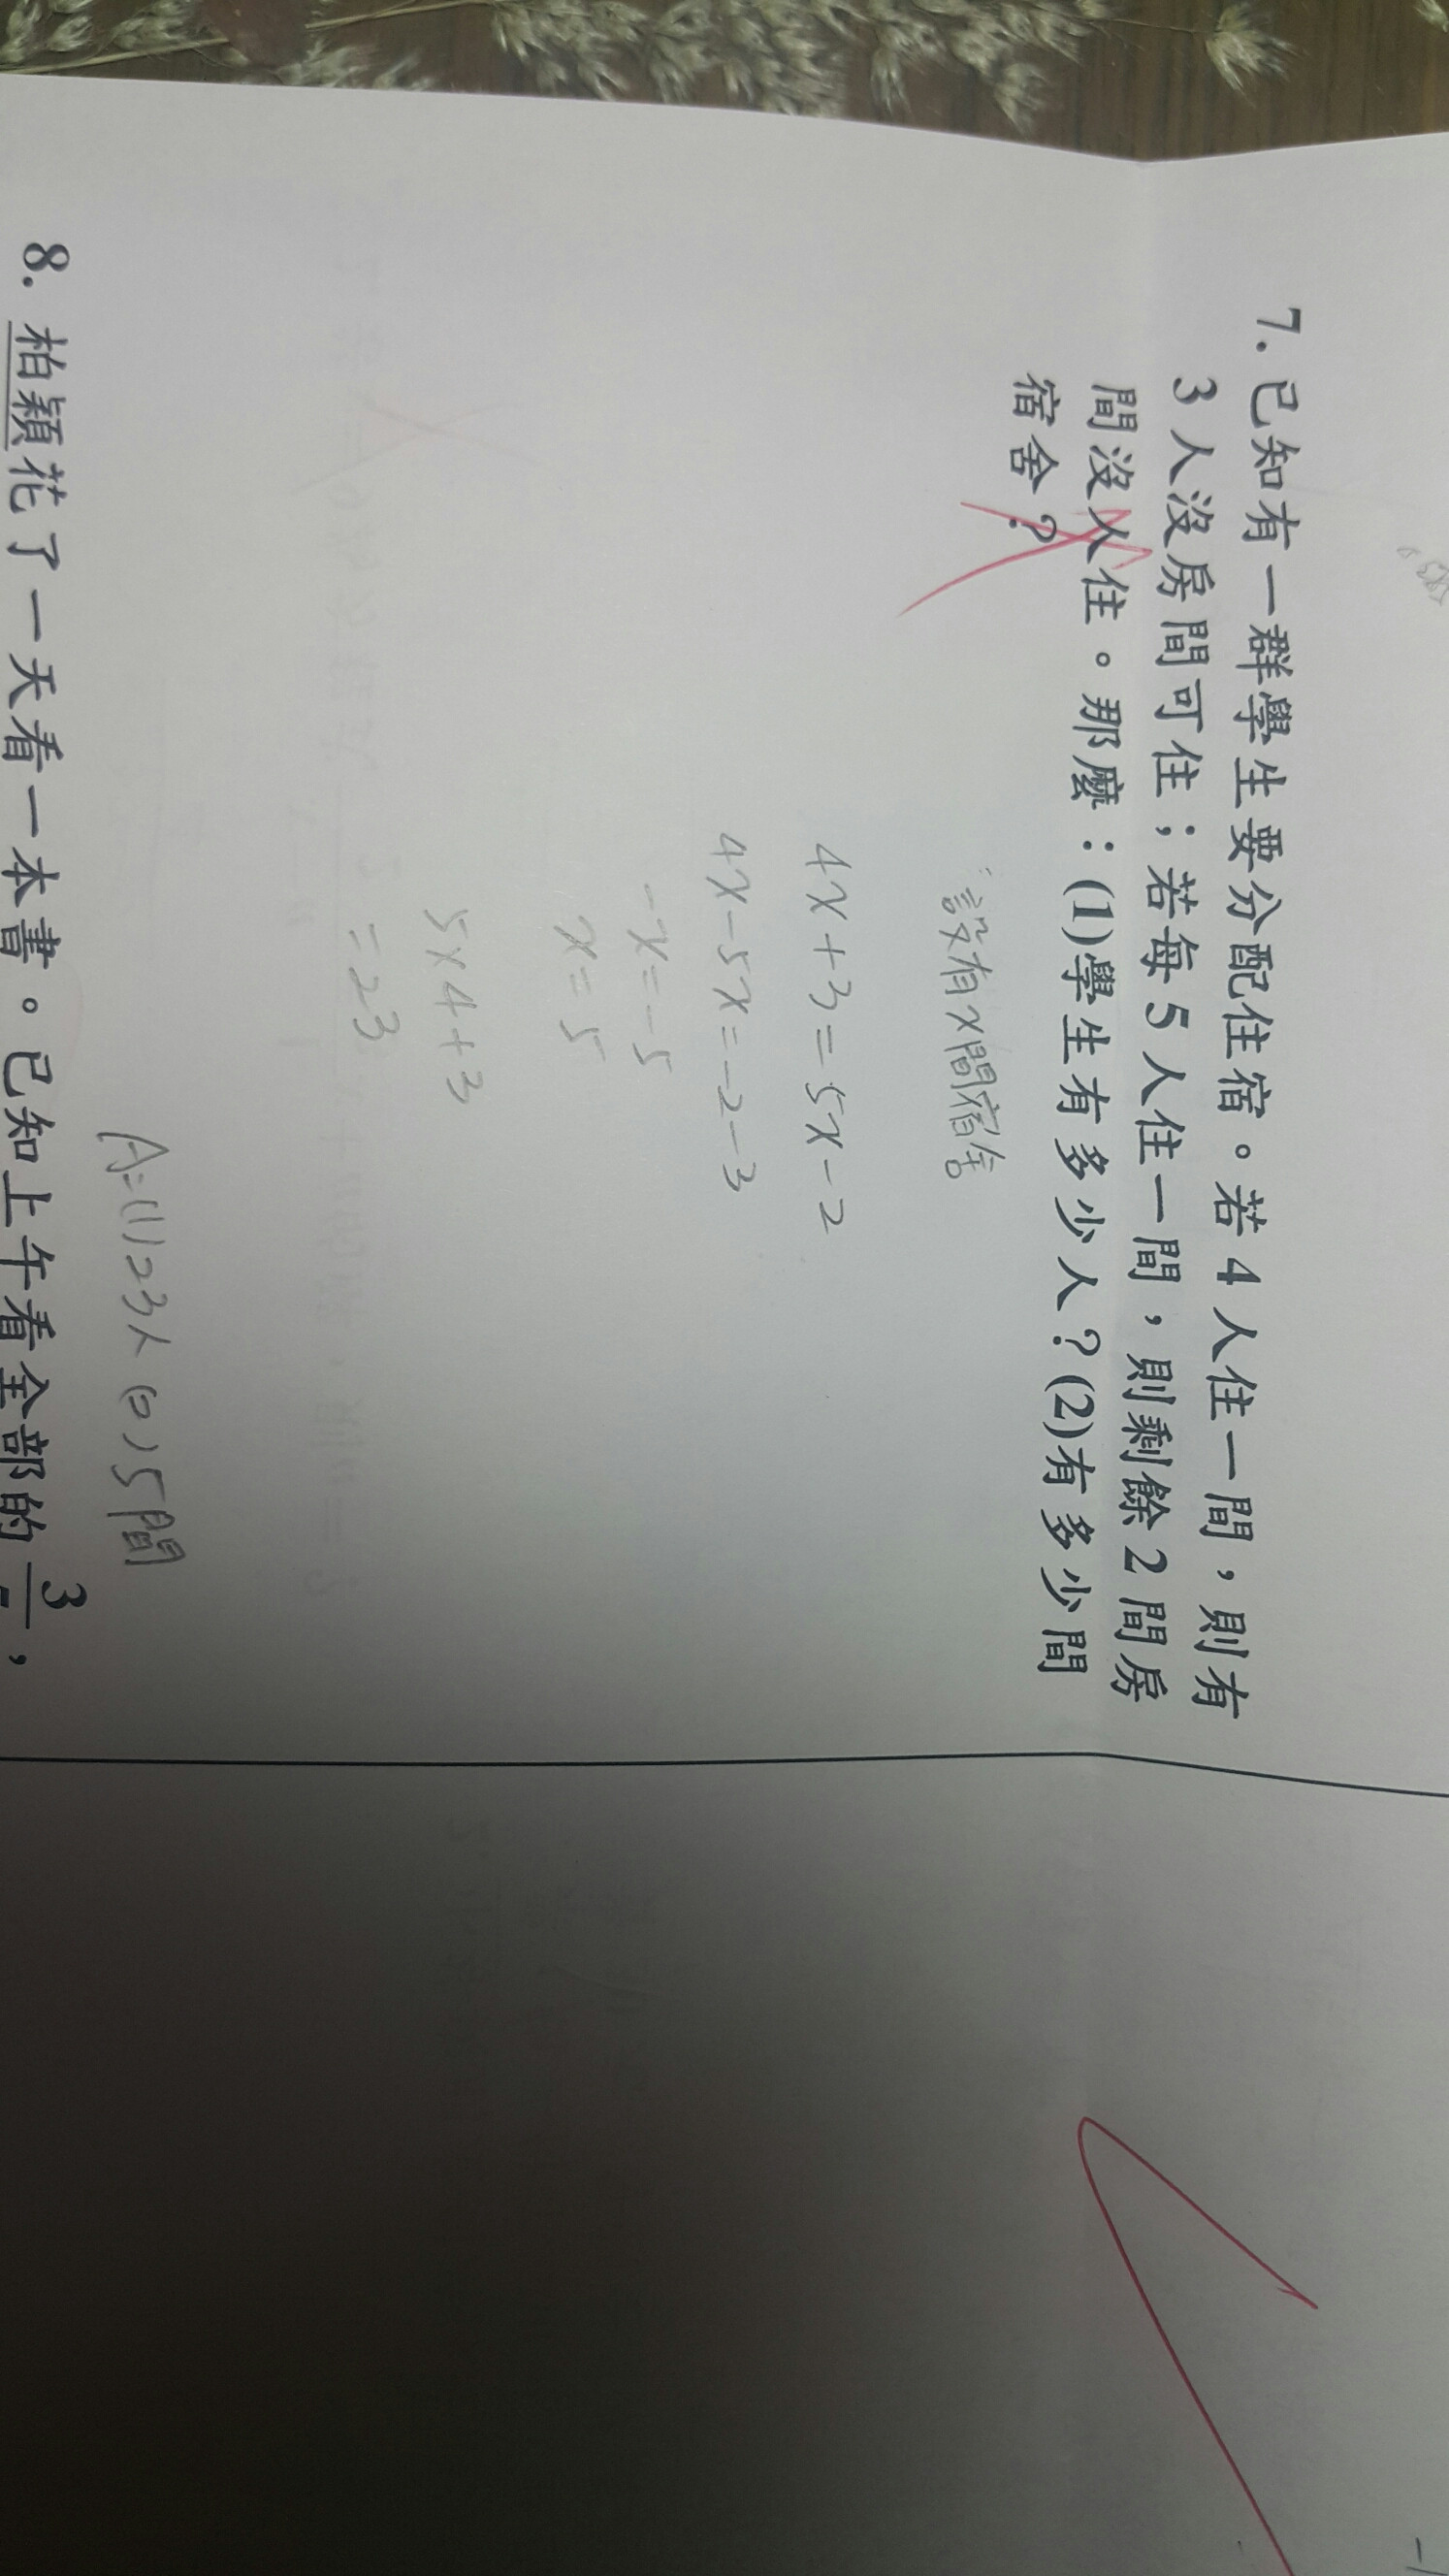 7. 已知有一群學生要分配住宿。若 4 人住一間，則有
3 人沒房間可住；若每 5 人住一間，則剩餘 2 間房
間沒人住。那麼：(1)學生有多少人？(2)有多少間
宿舍？
設有x間宿舍
4x+3=5x-2
4x-5x=-2-3
-x=-5
x=5
5x4+3
=23
A:(1)23人 (2)5間
8. 柏穎花了一天看一本書。已知上午看全部的 3